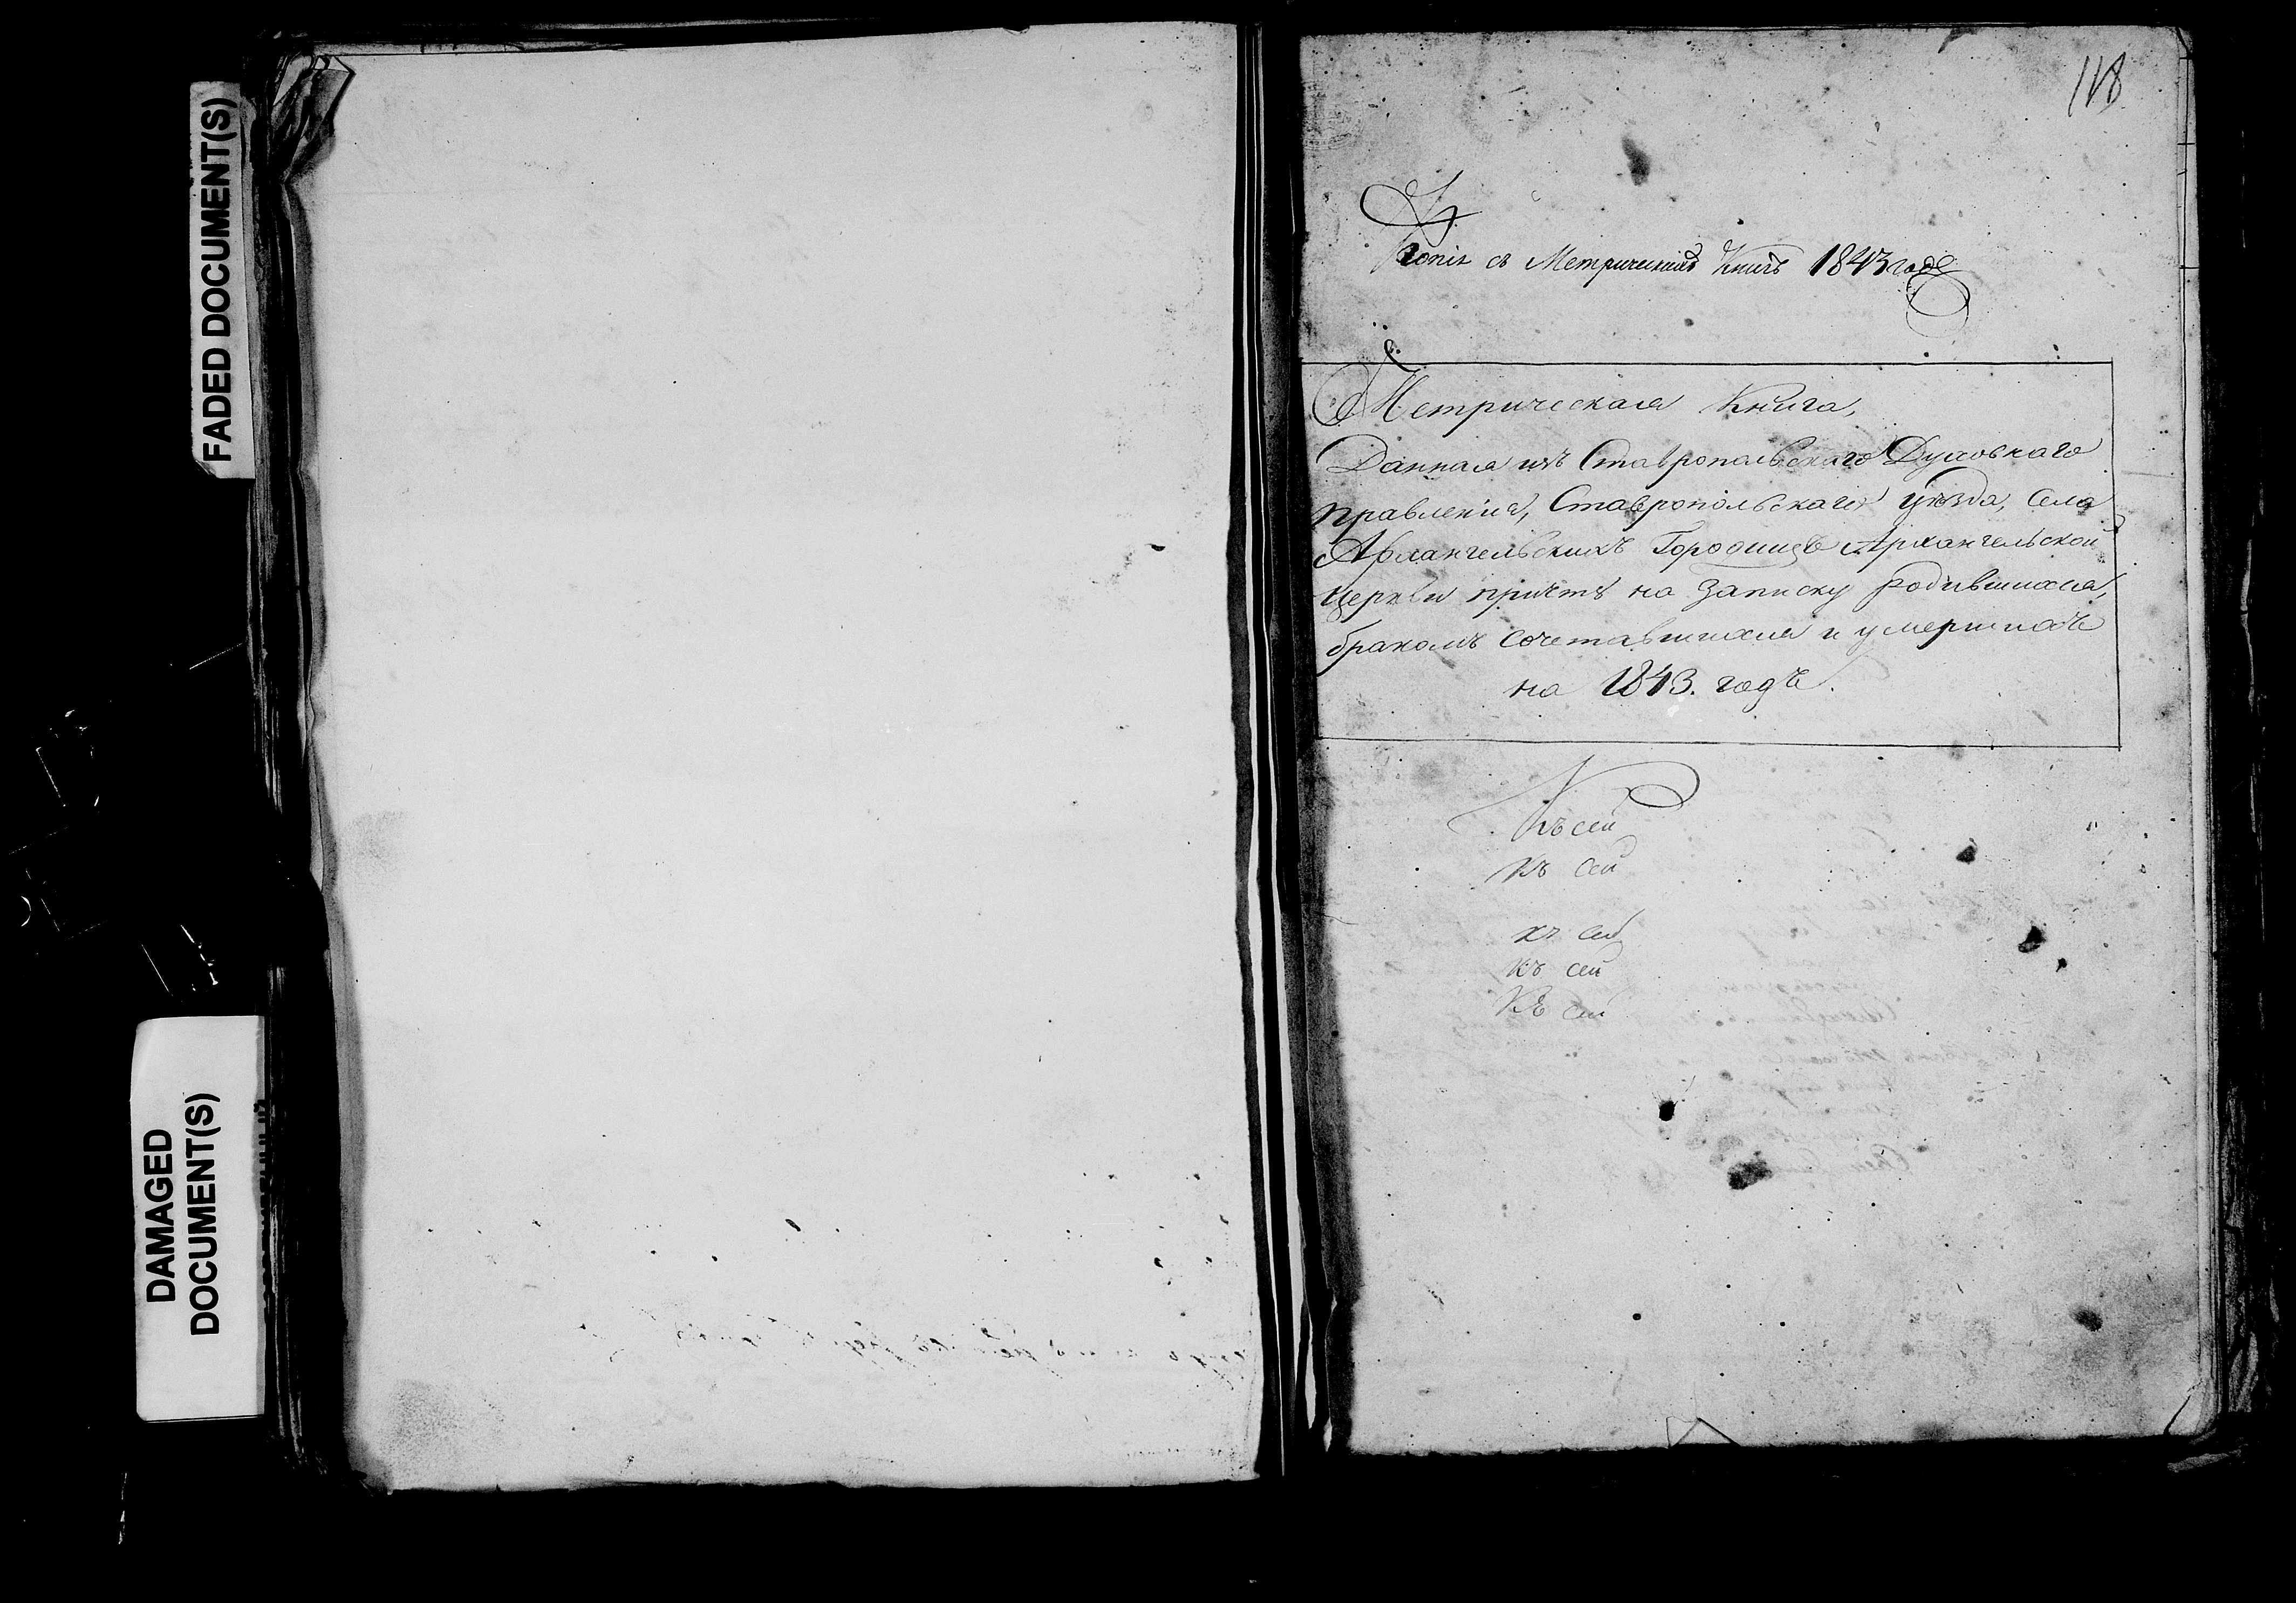 FADED DOCUMENT(S)
DAMAGED
DOCUMENT(S)
118
Копія съ Метрическихъ Книгъ 1843 года
Метрическая Книга,
Данная изъ Ставропольскаго Духовнаго
Правленія, Ставропольскаго уѣзда, Села
Архангельскихъ Городищъ Архангельской
церкви причтѣ на записку родившихся,
бракомъ сочетавшихся и умершихъ
на 1843. годъ.
Къ сей
Къ сей
къ сей
Къ сей
Къ сей